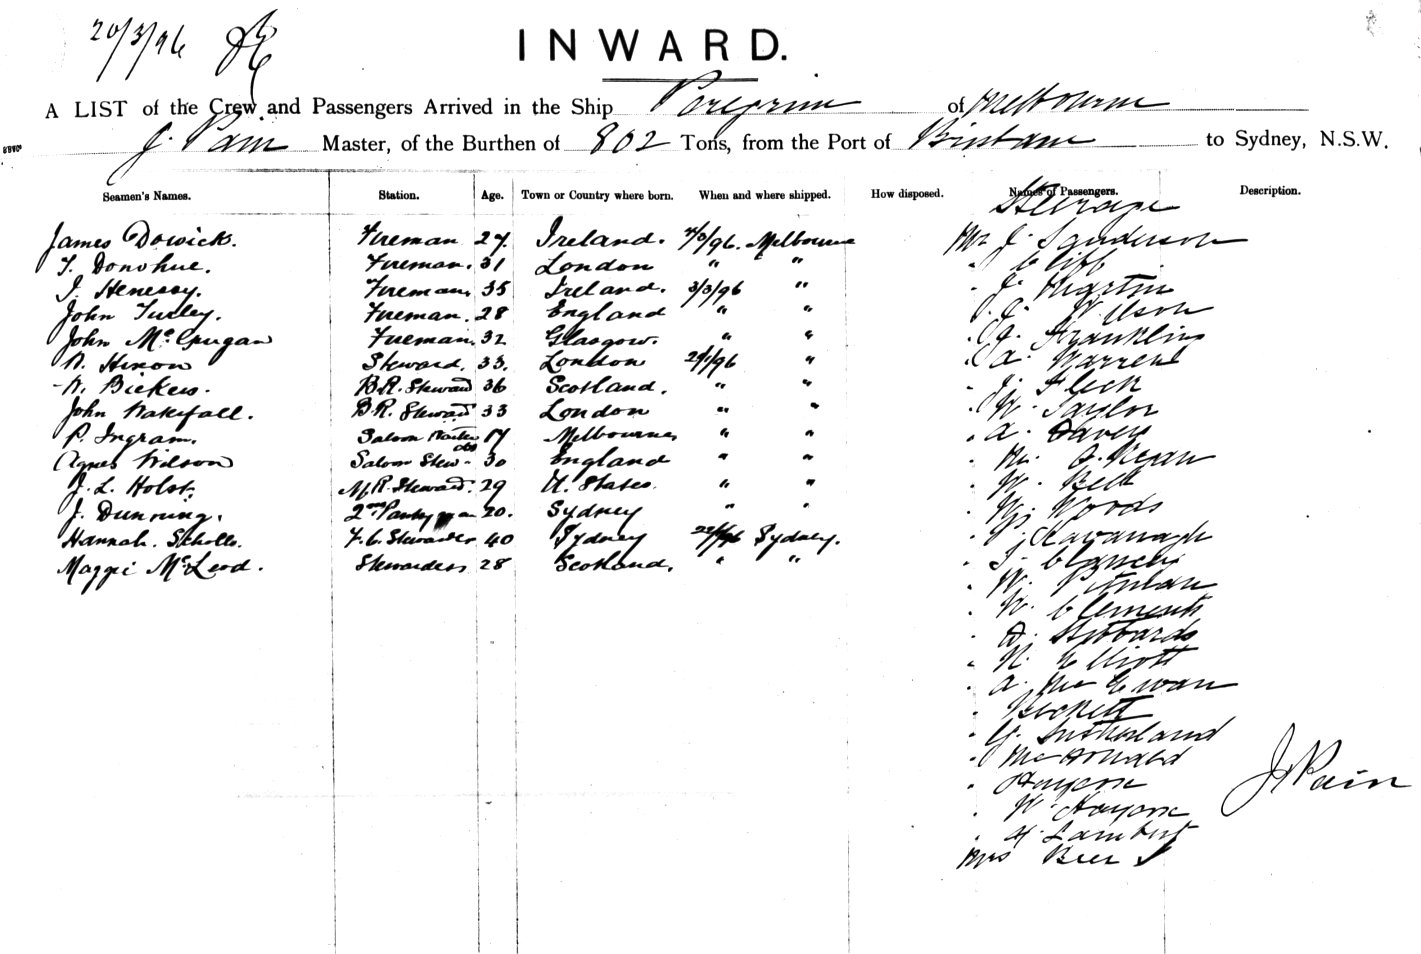 20/3/96
INWARD.
A LIST of the Crew and Passengers Arrived in the Ship Peregrine of Melbourne
J. Pain Master, of the Burthen of 802 Tons, from the Port of Brisbane to Sydney, N.S.W.
Seamen's Names. Station. Age. Town or Country where born. When and where shipped. How disposed. Names of Passengers. Description.
Steerage
James Dowick. Fireman 27. Ireland. /96. Melbourne Mr J. Sanderson
T. Donohue. Fireman. 31 London " " " Cliff
J. Henessy. Fireman. 35 Ireland. 3/3/96 " " J. Martin
John Turley. Fireman. 28 England " " " C. Wilson
John McGuigan Fireman. 32 Glasgow. " " " J. Franklin
W. Hixon Steward. 33. London 2/1/96 " " A. Warren
W. Bickers. B.R. Steward 36 Scotland. " " " J. Fleck
John Wakefall. B.R. Steward 33 London " " " W. Taylor
P. Ingram. Saloon 17 Melbourne " " " A. Davey
Agnes Wilson Saloon Stew- 30 England " " " M. Regan
J. L. Holst. M.R. Steward. 29 U. States. " " " W. Bell
J. Dunning. 2nd Pantryman 20. Sydney " " " Wm Woods
Hannah. Scholls. F.C. Stewardess 40 Sydney 22/ /96 Sydney. " J Kavanagh
Maggi McLeod. Stewardess 28 Scotland. " " " J. Clancy
" W. Pitman
" W. Clements
" D. Hibbards
" N. Elliott
" A. McEwan
" Beckett
" G. Sutherland
" McDonald
" Haydon
" W. Haydon
" H. Lambert
Mrs Beer
J Pain